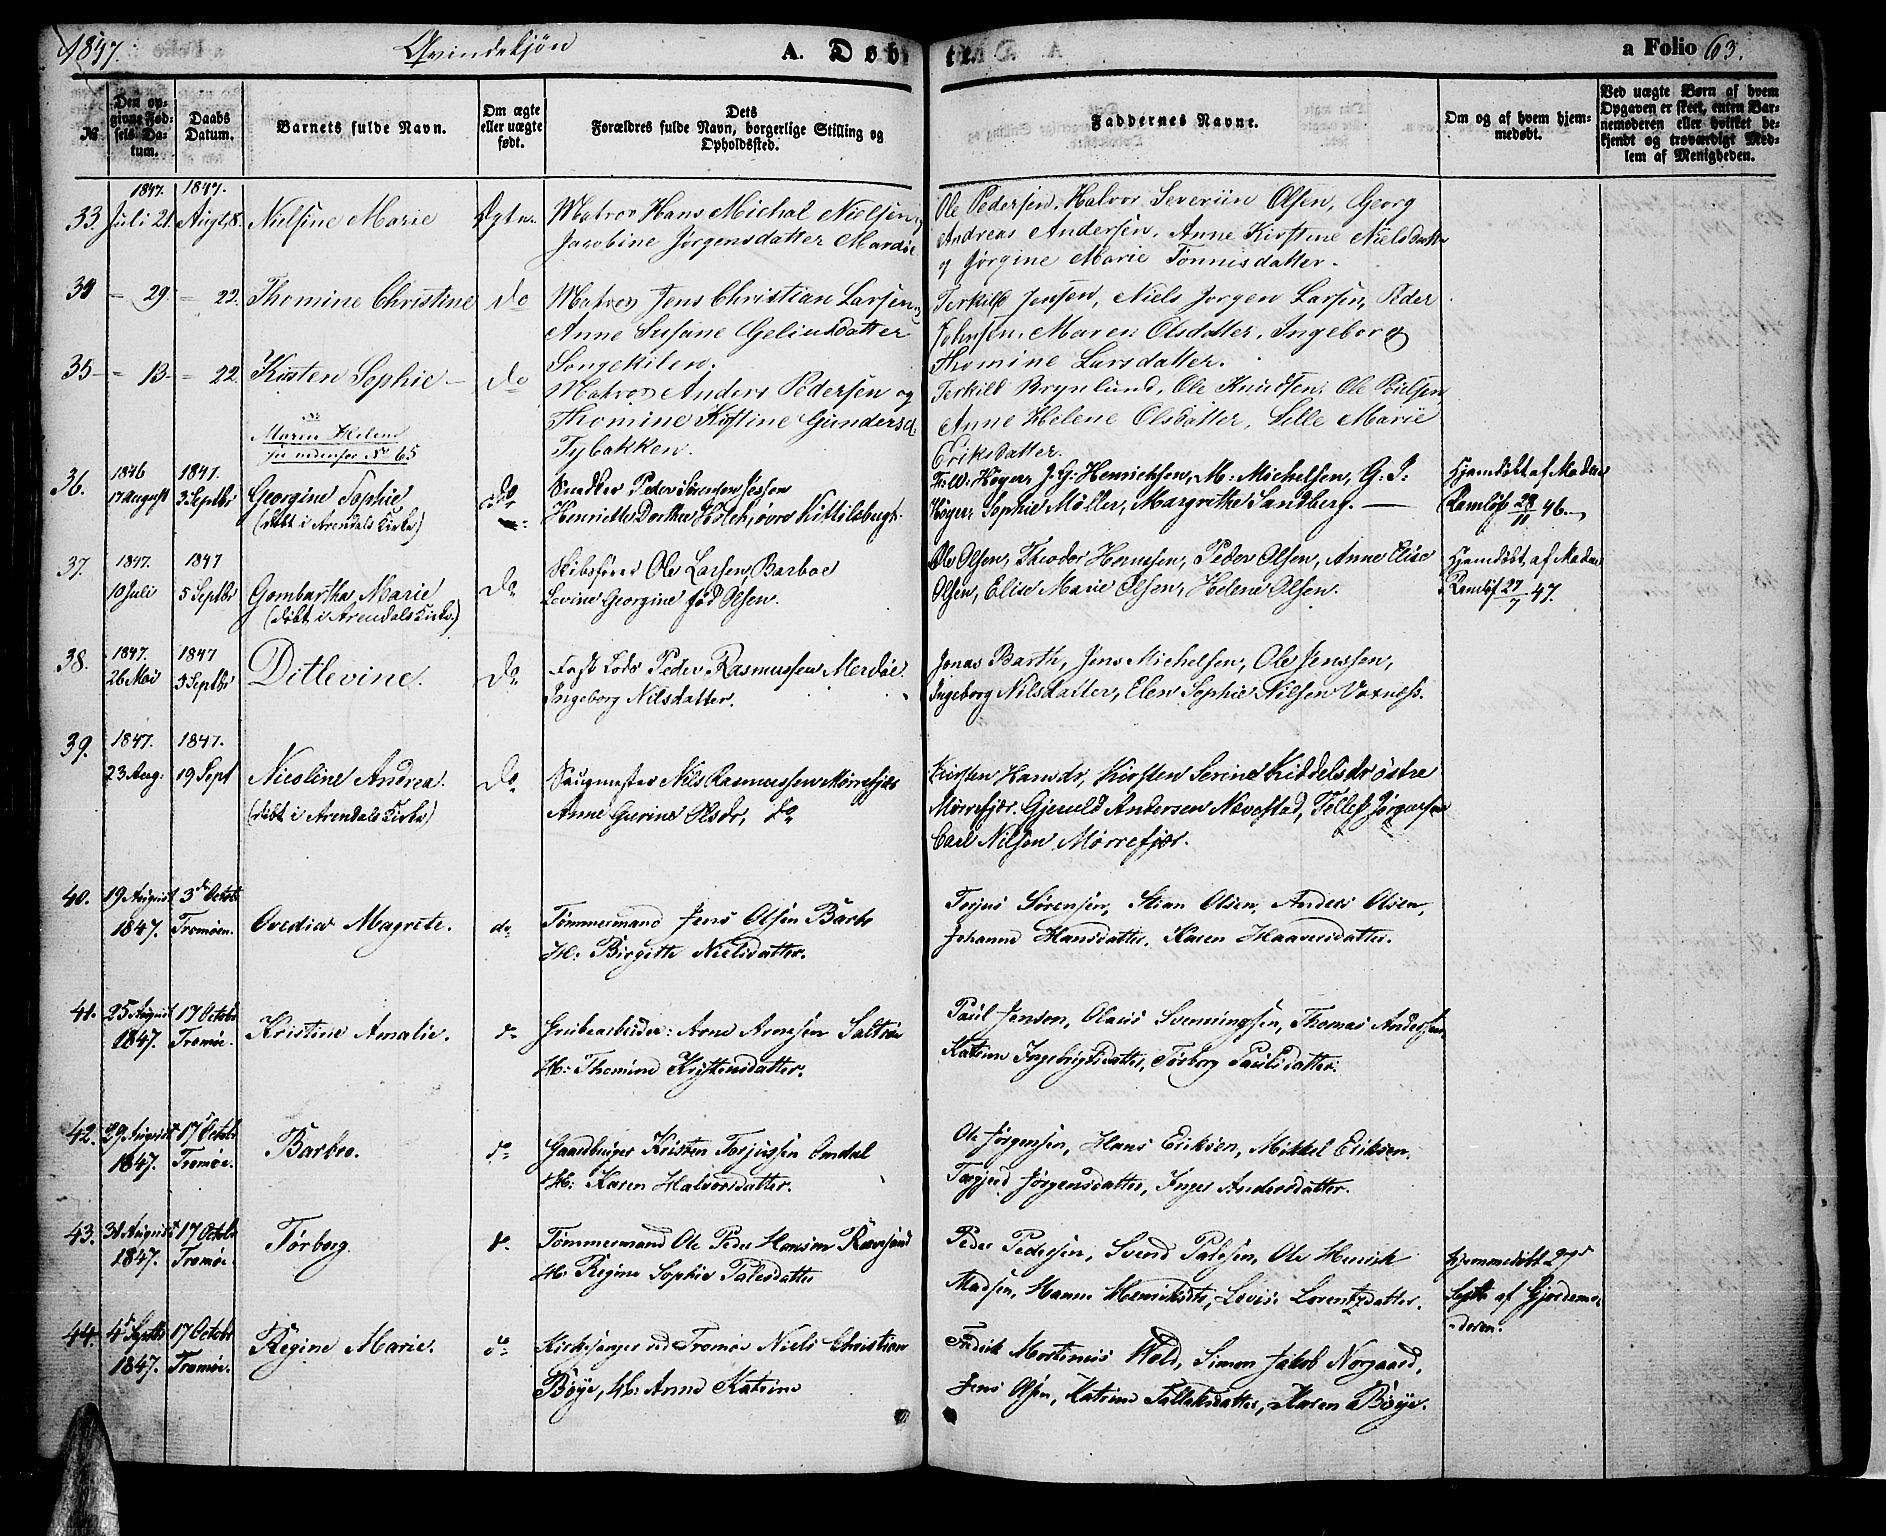 1847. Qvindekjön A. Døbte. a Folio 63.
№
Den op-
givne Fød-
sels Da-
tum.
Daabs
Datum.
Barnets fulde Navn.
Om ægte
eller uægte
født.
Dets
Forældres fulde Navn, borgerlige Stilling og
Opholdssted.
Faddernes Navne.
Om og af hvem hjem-
medøbt.
Ved uægte Børn af hvem
Opgaven er skeet, enten Bar-
nemoderen eller hvilket be-
kjendt og troværdigt Med-
lem af Menigheden.
1847. 1847.
33. Juli 21. Augt 8. Nielsine Marie Ægte. Matros Hans Michal Nielsen og
Jacobine Jörgensdatter Mardöe
Ole Pedersen, Halvor Severiin Olsen, Georg
Andreas Andersen, Anne Kirstine Nielsdatter
og Jörgine Marie Tönnisdatter.
34 – 29. – 22. Thomine Christine do Matros Jens Christian Larsen og
Anne Susane Geliusdatter
Songekilen.
Terkild Jensen, Niels Jörgen Larsen, Peder
Johnsen, Maren Olsdatter, Ingeborg
Thomine Larsdatter.
35 – 13 – 22. Kirsten Sophie do Matros Anders Pedersen og
Thomine Kistine Gundersd.
Tybakken.
Terkild Brynlund, Ole Knudsen, Ole Poulsen
Anne Helene Olsdatter, Lille Marie
Eriksdatter.
Maren Helene
see nedenfor № 65
36. 1846 17 August 1847. 3 Septbr Georgine Sophie
(döbt i Arendals Kirke)
do
Snedker Peder Sörensen Jessen
Henriette Dorthea Holck, övre Kittilsbugt.
Fr. W. Höyer, J. G. Henrichsen, M. Michelsen, G. J.
Höyer, Sophie Möller, Margrethe Sandberg. —
Hjemdöbt af Madam
Ramlöf 28/11 46.
37. 1847. 10 Juli 1847 5 Septbr Gombartha Marie
(döbt i Arendals Kirke)
do
Skibsförer Ole Larsen, Barboe
Levine Georgine fød Olsen.
Ole Olsen, Theodor Hernssen, Peder Olsen, Anne Elise
Olsen, Elise Marie Olsen, Helene Olsen.
Hjemdöbt af Madam
Ramlöf 27/7 47.
38. 1847. 26 Mai 1847 5 Septbr Ditlevine. do
Fast Lods Peder Rasmussen Merdöe.
Ingeborg Nilsdatter.
Jonas Barth, Jens Michelsen, Ole Jenssen,
Ingeborg Nilsdatter, Elen Sophie Nilsen Voxness.
39. 1847. 23 Aug: 1847. 19 Sept Nicoline Andrea.
(döbt i Arendals Kirke)
do
Saugmester Nils Rasmussen Mörrefjær
Anne Gurine Olsdr, do
Kirsten Hansdr, Kirsten Serine Kiddelsdr östre
Mörrefjær, Gjeruld Andersen Nævestad, Tellef Jörgensen
Carl Nilsen Mörrefjær.
40. 19 August 1847. 3de Octobr Tromøen. Ovedia Magrete. do
Tømmermand Jens Olsen Barbo
H: Birgitte Nielsdatter.
Terjus Sörensen, Stian Olsen, Anders Olsen,
Johanne Hansdatter, Karen Haaversdatter.
41. 25 August 1847. 17 Octobr Tromøe. Kristine Amalie. do
Grubearbeider: Arne Arnesen Saltrøe
H: Thomine Kristensdatter.
Paul Jenson, Olaus Svenningsen, Thomas Andersen,
Katrine Ingebrigtsdatter, Torborg Paulsdatter.
42. 29 August 1847. 17 Octobr Tromøe. Barbro. do
Gaardbruger Kristen Terjussen Omdal
H: Karen Halvorsdatter.
Ole Jørgensen, Hans Eriksen, Mikkel Eriksen.
Targjerd Jørgensdatter, Inger Andersdatter.
43. 31 August 1847. 17 Octobr Tromøe. Tørborg. do
Tømmermand Ole Peder Hansen Revesand
H: Regine Sophie Talesdatter
Peder Pedersen, Svend Palesen, Ole Henrik
Madsen, Hanne Henriksdtr, Lovise Lorentzdatter.
hjemmedøbt
af Gjordemo-
deren.
44. 4 Septbr 1847. 17 Octobr Tromøe. Regine Marie. do
Kirkesanger ved Tromøe Niels Christian
Bøye, H: Anne Katrine
Fredrik Mortinius Wold, Simon Jakob Norgaard,
Jens Olsen, Katrine Tallaksdatter, Karen Bøye.